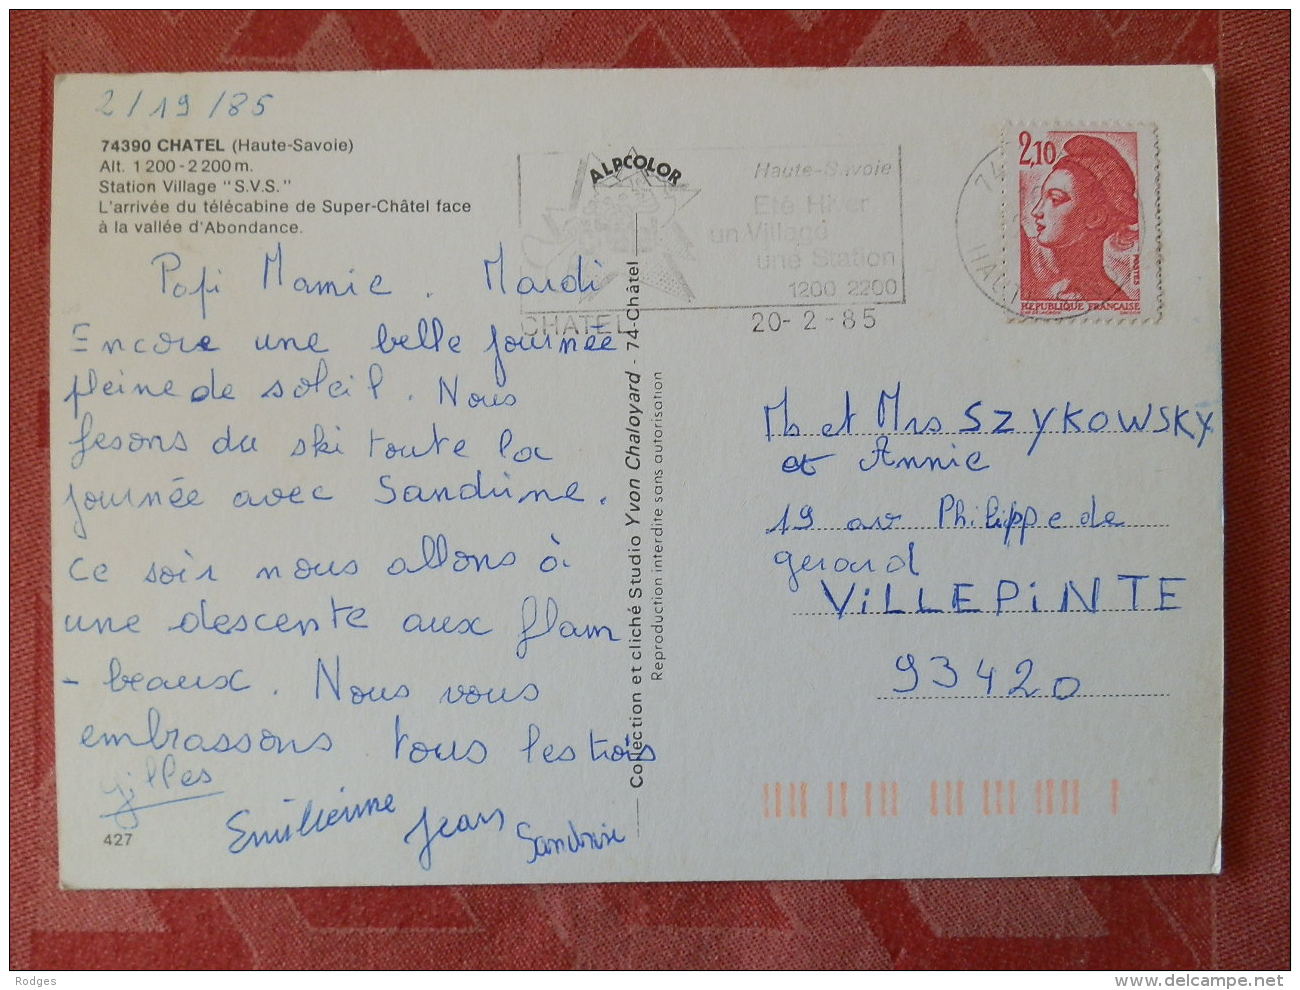 2/19/85
74390 CHATEL (Haute-Savoie)
Alt. 1 200 - 2 200 m.
Station Village "S.V.S."
L'arrivée du télécabine de Super-Châtel face
à la vallée d'Abondance.
Papi Mamie. Mardi
Encore une belle journée
pleine de soleil. Nous
fesons du ski toute la
journée avec Sandrine.
ce soir nous allons à
une descente aux flam
-beaux. Nous vous
embrassons tous les trois
Gilles
Emilienne Jean Sandrine
427
ALPCOLOR
Collection et cliché Studio Yvon Chaloyard - 74-Châtel
Reproduction interdite sans autorisation
Haute-Savoie
Eté Hiver
un Village
une Station
1200 2200
CHATEL
20-2-85
74
HAUT
2,10
POSTES
REPUBLIQUE FRANÇAISE
et Mrs SZYKOWSKY
et Annie
19 av Philippe de
gerard
ViLLEPiNTE
93420
Rodges
www.delcampe.net